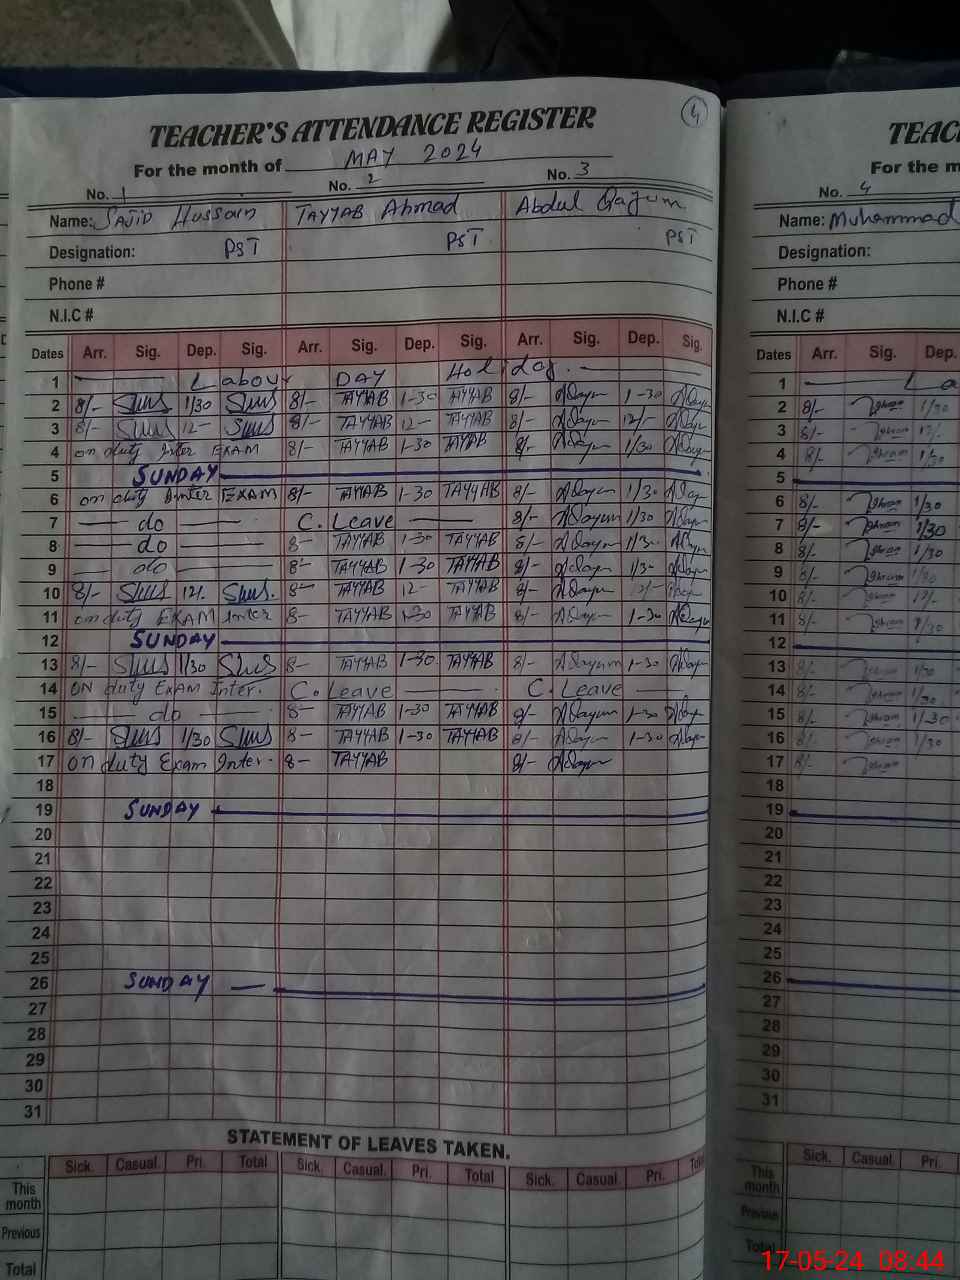 4
TEACHER'S ATTENDANCE REGISTER
For the month of MAY 2024
No. 1 No. 2 No. 3
Name: SAJID Hussain TAYYAB Ahmad Abdul Qayum
Designation: PST PST PST
Phone #
N.I.C #
Dates Arr. Sig. Dep. Sig. Arr. Sig. Dep. Sig. Arr. Sig. Dep. Sig.
1 Labour DAY Holiday.
2 8/- 1/30 8/- TAYYAB 1-30 TAYYAB 8/- 1-30
3 8/- 12- 8/- TAYYAB 12- TAYYAB 8/- 12/-
4 on duty Inter EXAM 8/- TAYYAB 1-30 TAYYAB 8/- 1/30
5 SUNDAY
6 on duty Inter EXAM 8/- TAYYAB 1-30 TAYYAB 8/- 1/30
7 do C. Leave 8/- 1/30
8 do 8- TAYYAB 1-30 TAYYAB 8/- 1/30
9 do 8- TAYYAB 1-30 TAYYAB 8/- 1/30
10 8/- 12/. 8- TAYYAB 12- TAYYAB 8/- 12/-
11 on duty EXAM Inter 8- TAYYAB 1-30 TAYYAB 8/- 1-30
12 SUNDAY
13 8/- 1/30 8- TAYYAB 1-30 TAYYAB 8/- 1-30
14 ON duty EXAM Inter. C. Leave C. Leave
15 do 8- TAYYAB 1-30 TAYYAB 8/- 1-30
16 8/- 1/30 8- TAYYAB 1-30 TAYYAB 8/- 1-30
17 on duty Exam Inter. 8- TAYYAB 8/-
18
19 SUNDAY
20
21
22
23
24
25
26 SUNDAY
27
28
29
30
31
STATEMENT OF LEAVES TAKEN.
Sick. Casual. Pri. Total Sick. Casual. Pri. Total Sick. Casual. Pri. Total
This month
Previous
Total
TEAC
For the m
No. 4
Name: Muhammad
Designation:
Phone #
N.I.C #
Dates Arr. Sig. Dep.
1 La
2 8/- 1/30
3 8/- 12/-
4 8/- 1/30
5
6 8/- 1/30
7 8/- 1/30
8 8/- 1/30
9 8/- 1/30
10 8/- 12/-
11 8/- 1/30
12
13 8/- 1/30
14 8/- 1/30
15 8/- 1/-30
16 8/- 1/30
17 8/-
18
19
20
21
22
23
24
25
26
27
28
29
30
31
Sick. Casual. Pri.
This month
Previous
Total
17-05-24 08:44